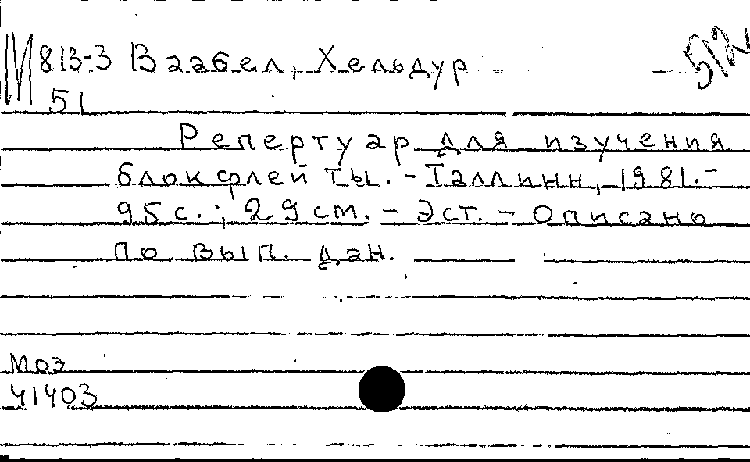 М 813-3 Ваабел, Хельдур 512
51
Репертуар для изучения
блокфлейты. - Таллинн, 1981. -
95 с.; 29 см. - Эст. - Описано
по вып. дан.
Моэ
41403